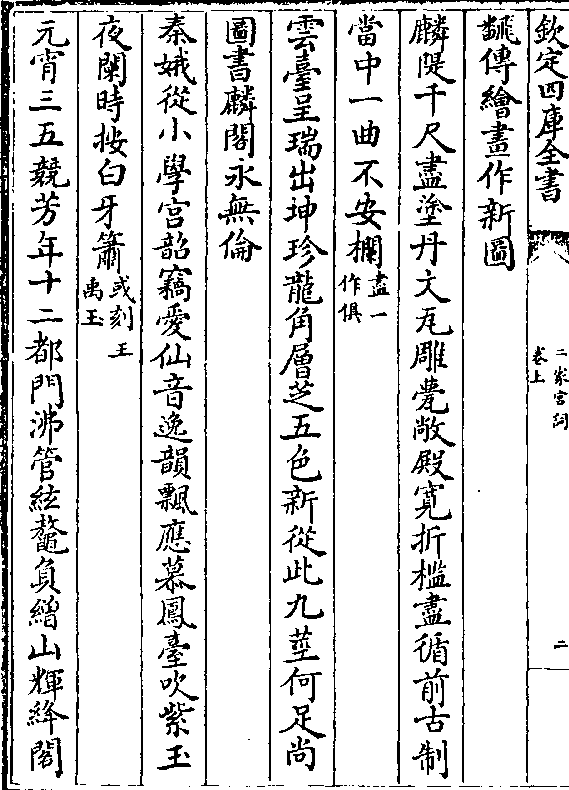 欽定四庫全書
二家宫詞
卷上
二
黼傳繪畫作新圖
麟隄千尺盡塗丹文瓦雕甍敞殿寛折檻盡循前古制
當中一曲不安欄盡一作俱
雲臺呈瑞出坤珍龍角層芝五色新從此九莖何足尚
圖書麟閣永無倫
秦娥從小學宫韶竊愛仙音逸韻飄應慕鳳臺吹紫玉
夜闌時按白牙簫或刻王禹玉
元宵三五競芳年十二都門沸管絃鼇負繒山輝絳闕